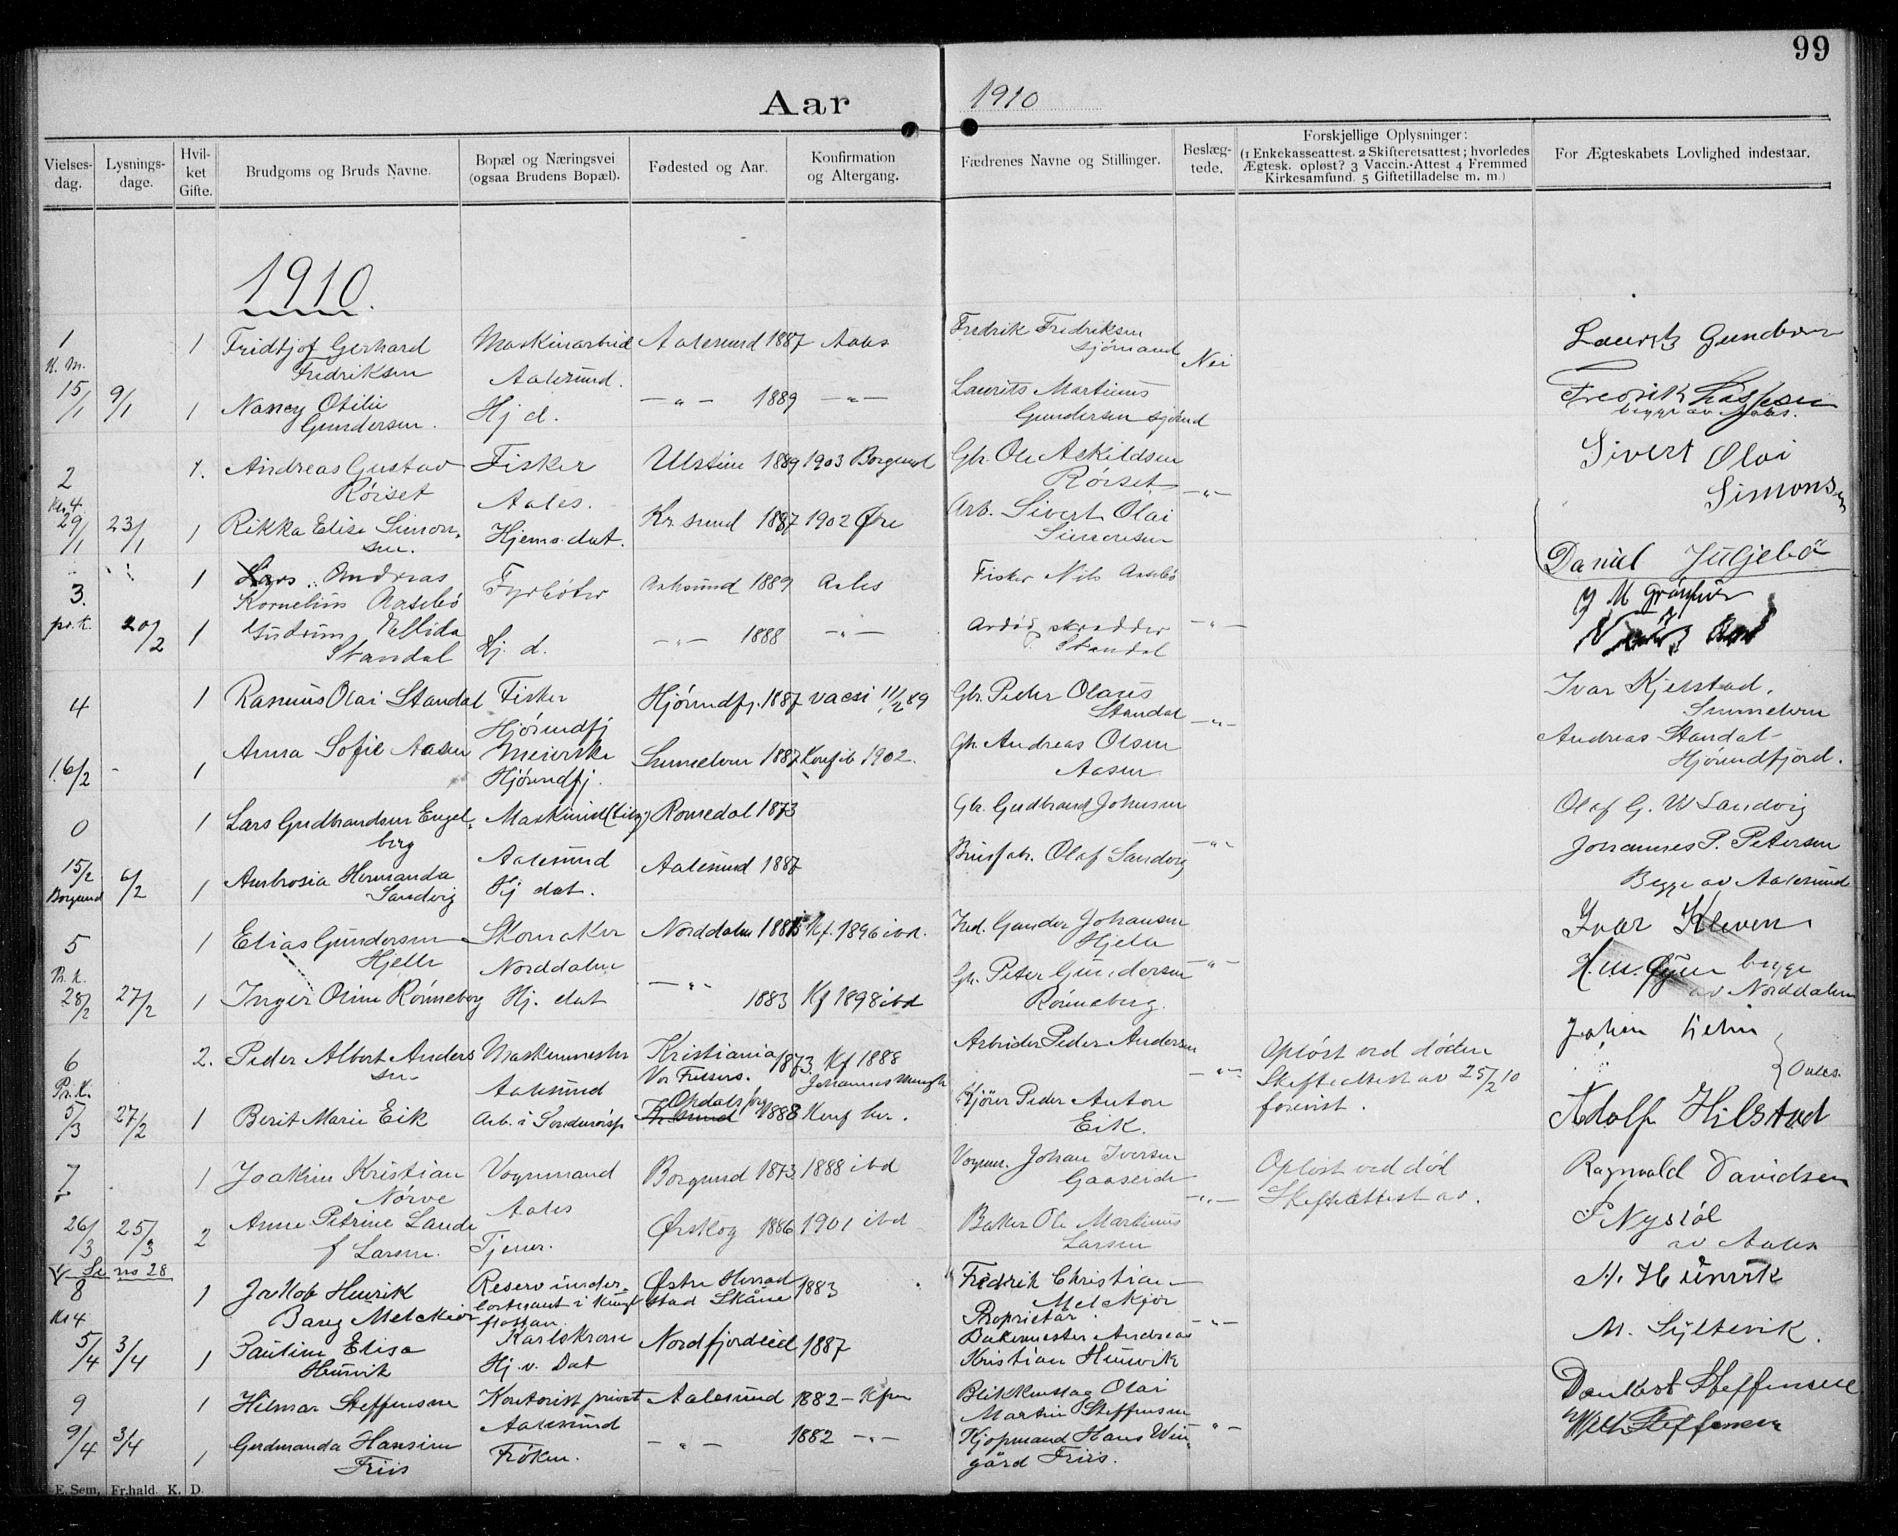 99
Aar 1910
Vielses-dag.
Lysnings-dage.
Hvil-ket Gifte.
Brudgoms og Bruds Navne.
Bopæl og Næringsvei (ogsaa Brudens Bopæl).
Fødested og Aar.
Konfirmation og Altergang.
Fædrenes Navne og Stillinger.
Beslæg-tede.
Forskjellige Oplysninger:
(1 Enkekasseattest. 2 Skifteretsattest; hvorledes
Ægtesk. opløst? 3 Vaccin.-Attest 4 Fremmed
Kirkesamfund. 5 Giftetilladelse m. m.)
For Ægteskabets Lovlighed indestaar.
1910.
1 1 Fridtjof Gerhard Maskinarbeid Aalesund 1887 Aales Fredrik Fredriksen
Fredriksen Aalesund. sjømand Nei
15/1 9/1 1 Nancy Otilie Hj d. —„— 1889 —„— Laurits Martinus
Gundersen. Gundersen sjømd
Fredrik
begge av Aales.
2 1. Andreas Gustav Fisker Ulstein 1889 1903 Borgund Gbr. Ole Askildsen
Rörset Aales. Rörset —„—
29/1 23/1 1 Rikka Elise Simon- Hjemd. dat. Kr.sund 1887 1902 Øre Arb. Sivert Olai
sen. Simonsen
Sivert Olai
Simonsen
3. 1 Lars Andreas Fyrbøter Aalesund 1889 Aales Fisker Nils Aasebö
Kornelius Aasebö
pr. k. 20/2 1 Gudrun Hj. d. —„— 1888 —„— skrædder —„—
Standal Standal
Daniel
4 1 Rasmus Olai Standal Fisker Hjørundfj. 1887 vacsi 11/2 89 Gbr. Peder Olaus
Hjørundfj Standal —„—
16/2 - 1 Anna Sofie Aasen Meierske Sunnelven 1887 Konf ib 1902. Gb. Andreas Olsen
Hjørundfj. Aasen
Ivar Kjelstad,
Sunnelven
Andreas Standal
Hjørundfjord.
0 1 Lars Gudbrandsen Engel- Maskinist Romedal 1873 Gbr. Gudbrand Johnsen
berg Aalesund —„—
15/2 6/2 1 Ambrosia Hermanda Hj dat. Aalesund 1887 Olaf Sandvig
Borgund Sandvig
Olaf G. W Sandvig
Johannes P. Petersen
Begge av Aalesund
5 1 Elias Gundersen Skomaker Norddalen Kf. 1896 ibd. Gunder Johansen
Hjelle Norddalen Hjelle —„—
28/2 27/2 1 Inger Oline Rönneberg Hj. dat —„— 1883 Kf 1898 ibd Gb. Peter Gundersen
Rönneberg.
Ivar Kleven
begge
av Norddalen
6 2. Peder Albert Anders Maskinmester Kristiania 1873. Kf 1888 Arbeider Peder Andersen Opløst ved døden
sen Aalesund Vor Frelsers. Johannes menigh —„— Skifteattest av 25/2 10
Pr.k. 5/3 27/2 1 Berit Marie Eik Arb. i Opdal 1888 Konf her. Kjører Peder Anton forevist.
Eik.
Johan
Aales.
Adolf Hilstad
7 1 Joakim Kristian Vognmand Borgund 1873 1888 ibd Vognm. Johan Iversen Opløst ved død
Norve Aales Gaaseide —„— Skifteattest av.
26/3 25/3 2 Anne Petrine Lande Tjener. Ørskog 1886 1901 ibd Baker Ole Martinus
f Larsen. Larsen
Ragnvald Davidsen
P Nystöl
av Aales
Se no 28
8 1 Jakob Henrik Reserv under- Østre Herrad 1883 Fredrik Christian
Bang Melckior löitenant i Kungl stad Skåne Melckior
flottan Proprietär. —„—
Karlskrona
5/4 3/4 1 Pauline Elisa Hj. v. Dat Nordfjordeid 1887 Bakermester Andreas
Hunvik Kristian Hunvik
A. Hunvik
M. Syltevik.
9 1 Hilmar Steffensen Kontorist privat Aalesund 1882 - Kfm Blikkenslag Olai
Aalesund Martin Steffensen —„—
9/4 3/4 1 Gerdmanda Hansine Frøken. —„— 1882 —„— Kjøpmand Hans Win-
Friis gård Friis.
Dankert Steffensen
Steffensen
E. Sem, Fr.hald. K. D.